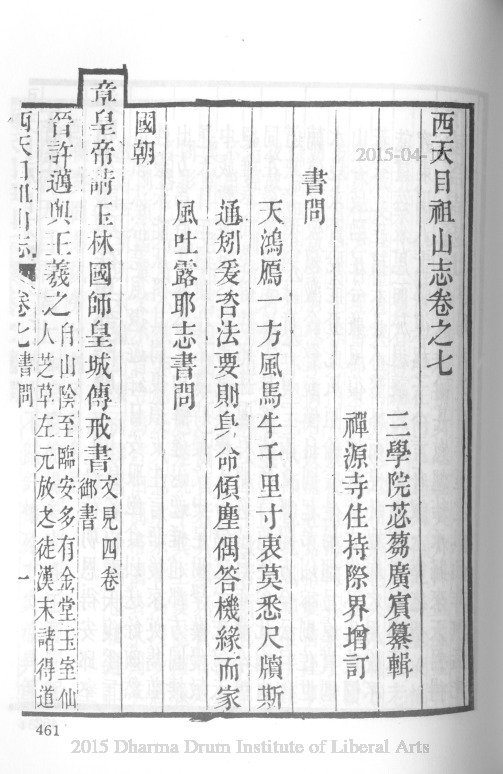 西天目祖山志卷之七
三學院苾蒭廣賓纂輯
禪源寺住持際界增訂
書問
天鴻鴈一方風馬牛千里寸衷莫悉尺牘斯
通矧爰咨法要則身命傾塵偶答機緣而家
風吐露耶志書問
國朝
章皇帝請玉林國師皇城傳戒書文見四卷御書
晉許邁與王羲之自山陰至臨安多有金堂玉室仙人芝草左元放之徒漢末諸得道
西天目祖山志 卷七 書問 一
461
2015-04-
2015 Dharma Drum Institute of Liberal Arts